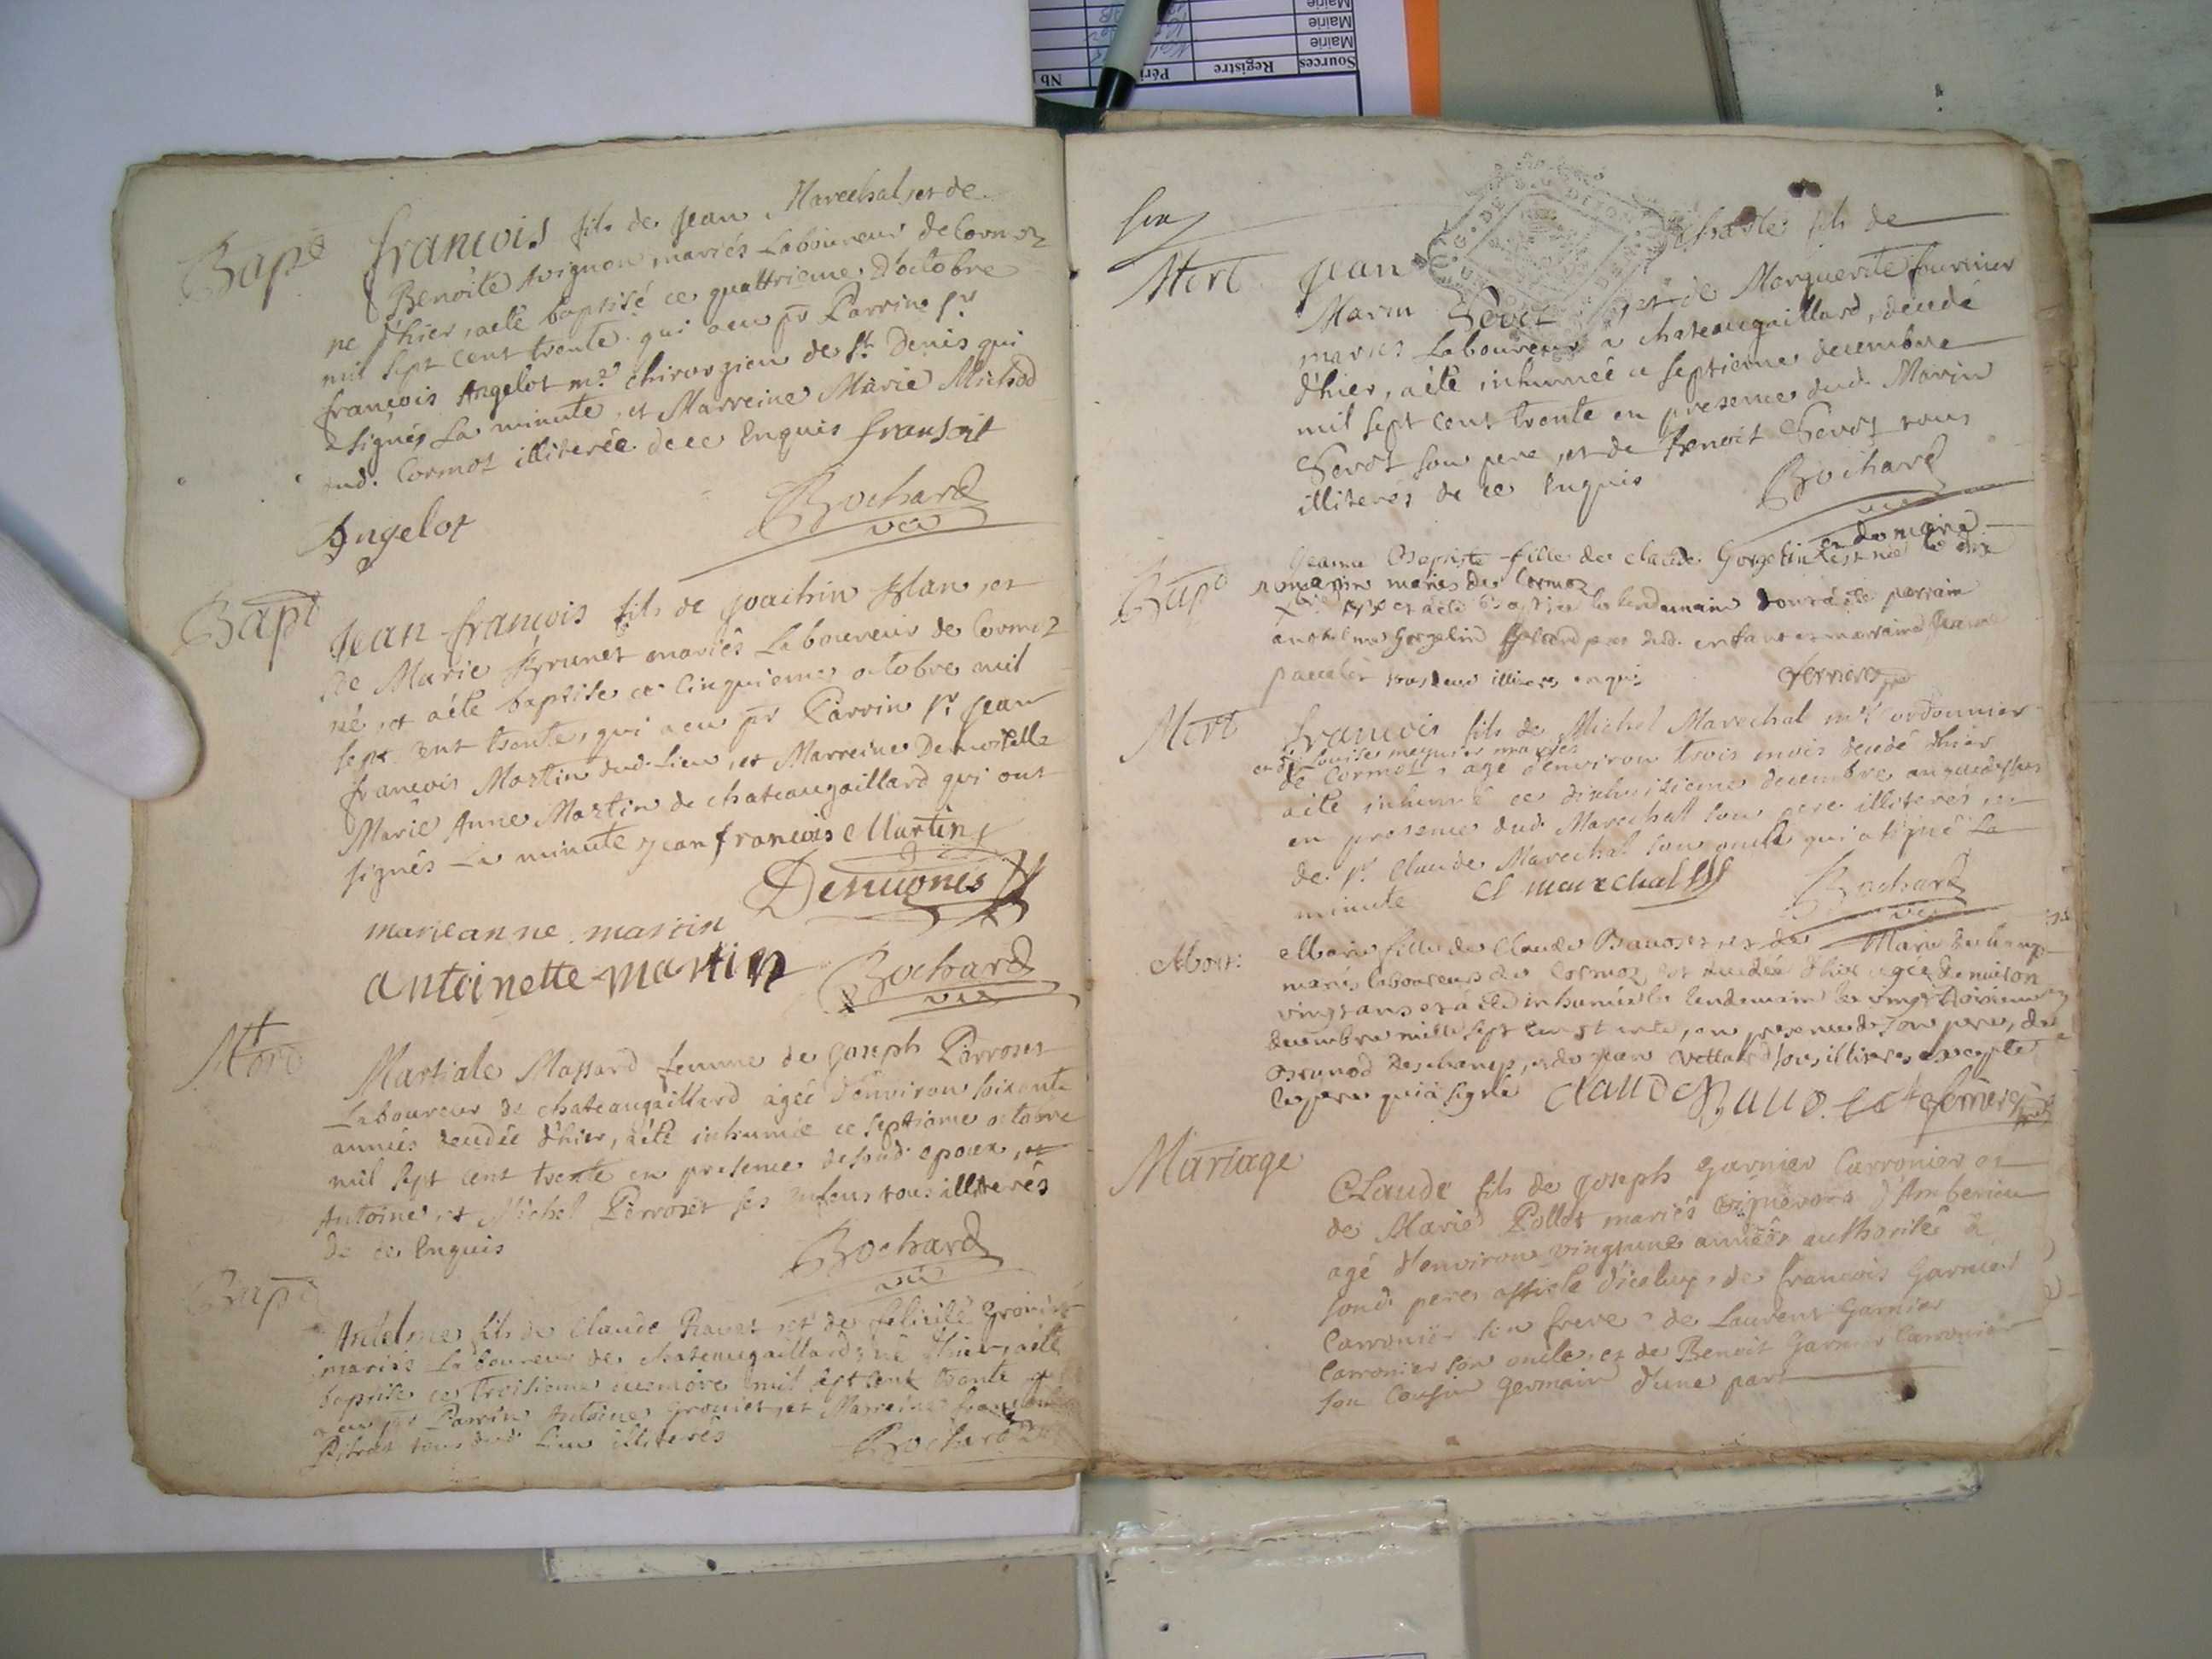 Sources Registre Péri Nb
Mairie
Mairie
Mairie
Bapt
francois fils de Jean Marechal, et de
Benoite mariés Laboureur de Cormoz
ne d'hier, aeté baptisé ce quattrieme d'octobre
mil sept cent trente qui aeu pr Parrin sr
françois Angelot mre chirurgien de st Denis qui
a signés La minute, et Marreine Marie Michod
dud. Cormoz illiterée de ce Enquis fransoit
Angelot
Bochard
vic
Bapt
Jean francois fils de Joachin Blanc, et
de Marie Brunet mariés Laboureur de Cormoz
né, et aété baptise ce cinquieme octobre mil
sept cent trente, qui aeu pr Parrin sr Jean
francois Martin dud. Lieu, et Marreine Demoiselle
Marie Anne Martin de chateaugaillard qui ont
signés La minute jean francois Martin
marieanne martin
antoinette martin
Bochard
vic
Mort
Martiale Massard femme de Joseph Perroset
Laboureur de chateaugaillard agée d'environ soixante
années decedée d'hier, aété inhumée ce septieme octobre
mil sept cent trente en presence de soud. epoux, et
Antoine, et Michel Perroset ses enfens tous illiterés
de ce Enquis
Bochard
vic
Bapt
Antelme fils de Claude Ravet, et de felicité
mariés Laboureur de chateaugaillard, né d'hier, aété
baptise ce troisieme decembre mil sept cent trente
a eu pr Parrin Antoine et Marreine
tous dud. Lieu illiterés
Bochard
Mort
Jean fils de
Marin Sevoz, et de Marguerite fournier
mariés Laboureur a chateaugaillard, décedé
d'hier, aété inhumée ce septieme decembre
mil sept cent trente en presence dud. Marin
Sevoz son pere, et de Benoit Sevoz tous
illiterés de ce Enquis
Bochard
vic
Bapt
Jeanne Baptiste fille de claude Gorgelin est née le dix
mariés de Cormoz
et aété Baptise le lendemain dont aété parrain
anthelme Gorgelin dud. enfant et marraine Jeanne
tous deux illiteres enquis
ferrier
Mort
francois fils de Michel Marechal mre cordonnier
et de Louise mariés
de Cormoz, agé d'environ trois mois decedé d'hier
aété inhumé ce dixhuitieme decembre an que dessus
en presence dud. Marechal son pere illiteré, et
de sr Claude Marechal son oncle qui a signé La
minute Cl marechal
Bochard
vic
Mort:
Marie fille de Claude et de Marie Deschamp
mariés laboureurs de Cormoz est decedée d'hier agée d'environ
vingt ans et aété inhumée le lendemain le vingt troisieme
decembre mille sept cent trente, en presence de son pere, de
Deschamp, et de jean tous illiteres excepté
le pere qui a signé
Mariage
CLaude fils de Joseph Garnier Carronier et
de Marie Pollet mariés vignerons d'Amberieu
agé d'environ vingt une années authorisé de
soud. pere assisté d'iceluy, de francois Garnier
Carronier son frere, de Laurent Garnier
Carronier son oncle, et de Benoit Garnier Carronier
son Cousin germain d'une part